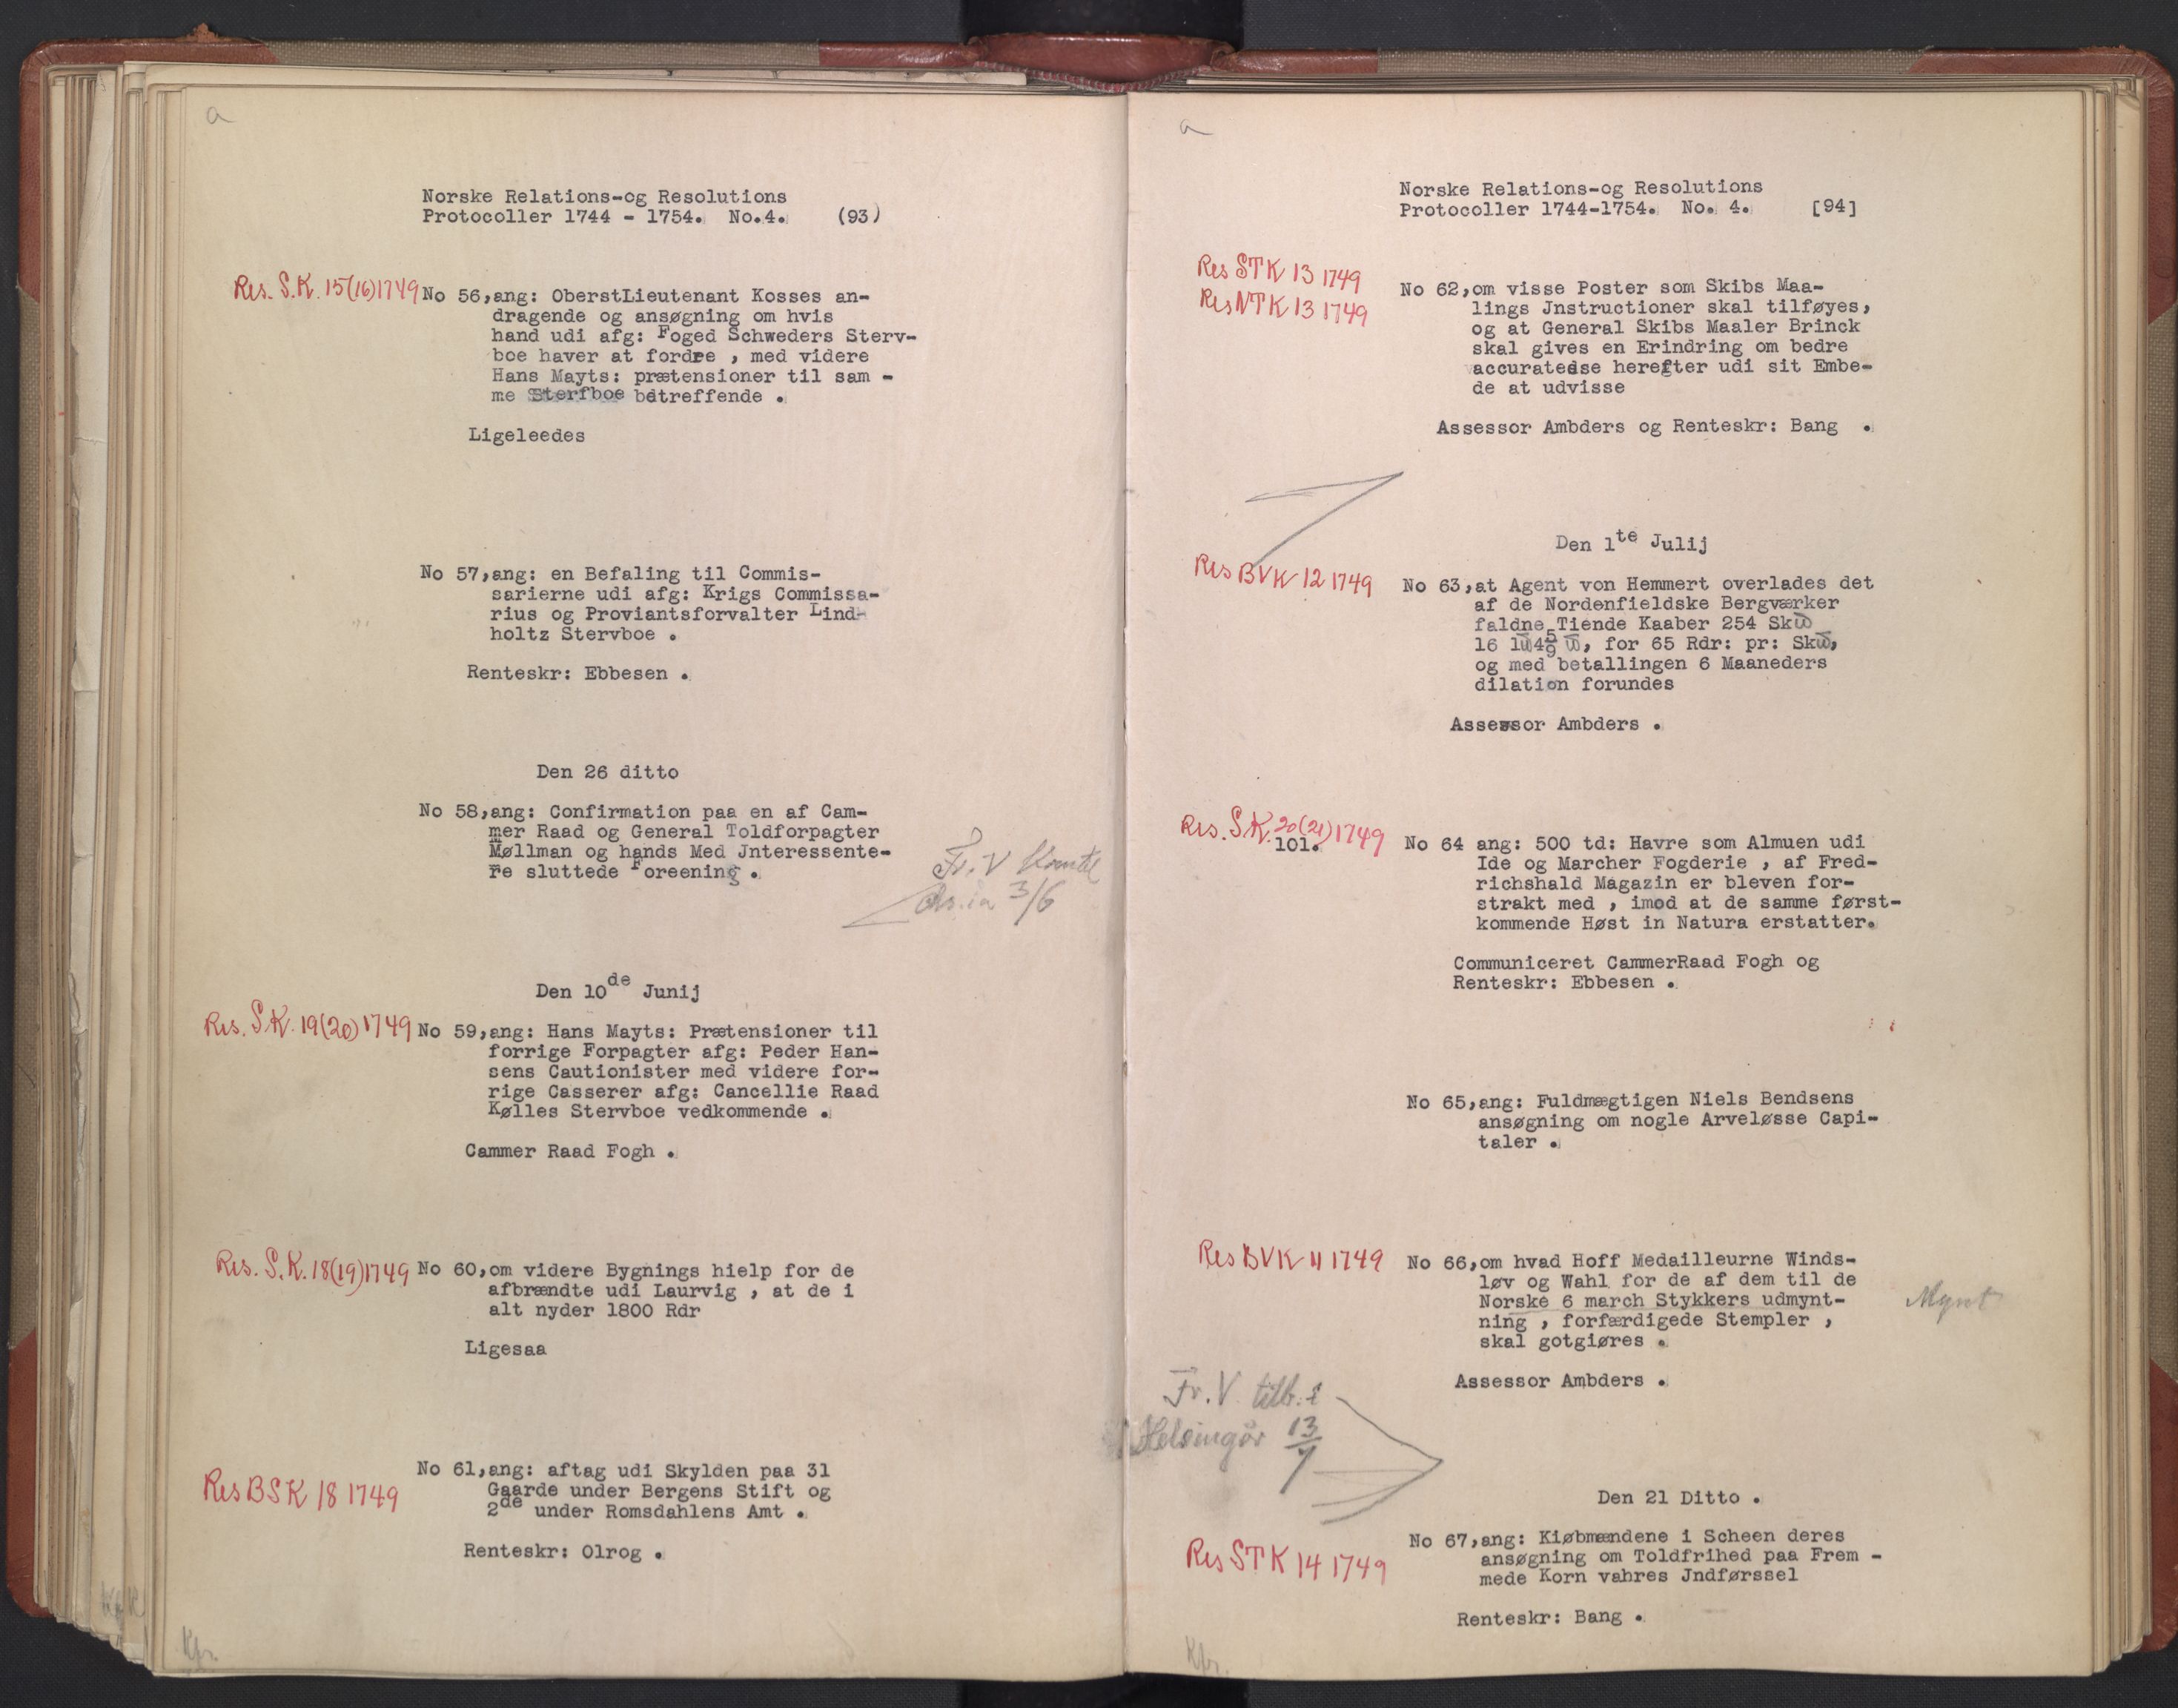 a
Norske Relations-og Resolutions
Protocoller 1744 - 1754. No.4. (93)
Res. S.K. 15(16)1749
No 56,ang: OberstLieutenant Kosses an-
dragende og ansøgning om hvis
hand udi afg: Foged Schweders Sterv-
boe haver at fordre , med videre
Hans Mayts: prætensioner til sam -
me Sterfboe betreffende .
Ligeleedes
No 57,ang: en Befaling til Commis-
sarierne udi afg: Krigs Commissa-
rius og Proviantsforvalter Lind-
holtz Stervboe .
Renteskr: Ebbesen .
Den 26 ditto
No 58,ang: Confirmation paa en af Cam-
mer Raad og General Toldforpagter
Møllman og hands Med Jnteressente-
re sluttede Foreening .
Fr. V
3/6
Den 10de Junij
Res. S.K. 19(20)1749
No 59,ang: Hans Mayts: Prætensioner til
forrige Forpagter afg: Peder Han-
sens Cautionister med videre for-
rige Casserer afg: Cancellie Raad
Kølles Stervboe vedkommende .
Cammer Raad Fogh .
Res. S.K. 18(19)1749
No 60,om videre Bygnings hielp for de
afbrændte udi Laurvig , at de i
alt nyder 1800 Rdr
Ligesaa
Res BSK 18 1749
No 61,ang: aftag udi Skylden paa 31
Gaarde under Bergens Stift og
2de under Romsdahlens Amt .
Renteskr: Olrog .
Kfr.
a
Norske Relations-og Resolutions
Protocoller 1744-1754. No. 4. [94]
Res STK 13 1749
Res NTK 13 1749
No 62,om visse Poster som Skibs Maa-
lings Jnstructioner skal tilføyes,
og at General Skibs Maaler Brinck
skal gives en Erindring om bedre
accuratesse herefter udi sit Embe-
de at udvisse
Assessor Ambders og Renteskr: Bang .
Den 1te Julij
Res BVK 12 1749
No 63,at Agent von Hemmert overlades det
af de Nordenfieldske Bergværker
faldne Tiende Kaaber 254 Sk℔
16 l℔ 4 5/9 ℔, for 65 Rdr: pr: Sk℔,
og med betallingen 6 Maaneders
dilation forundes
Assessor Ambders .
Res. S.K. 20(21)1749
101.
No 64 ang: 500 td: Havre som Almuen udi
Ide og Marcher Fogderie , af Fred-
richshald Magazin er bleven for-
strakt med , imod at de samme først-
kommende Høst in Natura erstatter.
Communiceret CammerRaad Fogh og
Renteskr: Ebbesen .
No 65,ang: Fuldmægtigen Niels Bendsens
ansøgning om nogle Arveløsse Capi-
taler .
Res BVK 11 1749
No 66,om hvad Hoff Medailleurne Winds-
løv og Wahl for de af dem til de
Norske 6 march Stykkers udmynt-
ning , forfærdigede Stempler ,
skal gotgiøres .
Mynt
Assessor Ambders .
Fr. V tilb. i
Helsingør 13/7
Den 21 Ditto .
Res STK 14 1749
No 67,ang: Kiøbmændene i Scheen deres
ansøgning om Toldfrihed paa Frem -
mede Korn vahres Jndførssel
Renteskr: Bang .
Kfr.